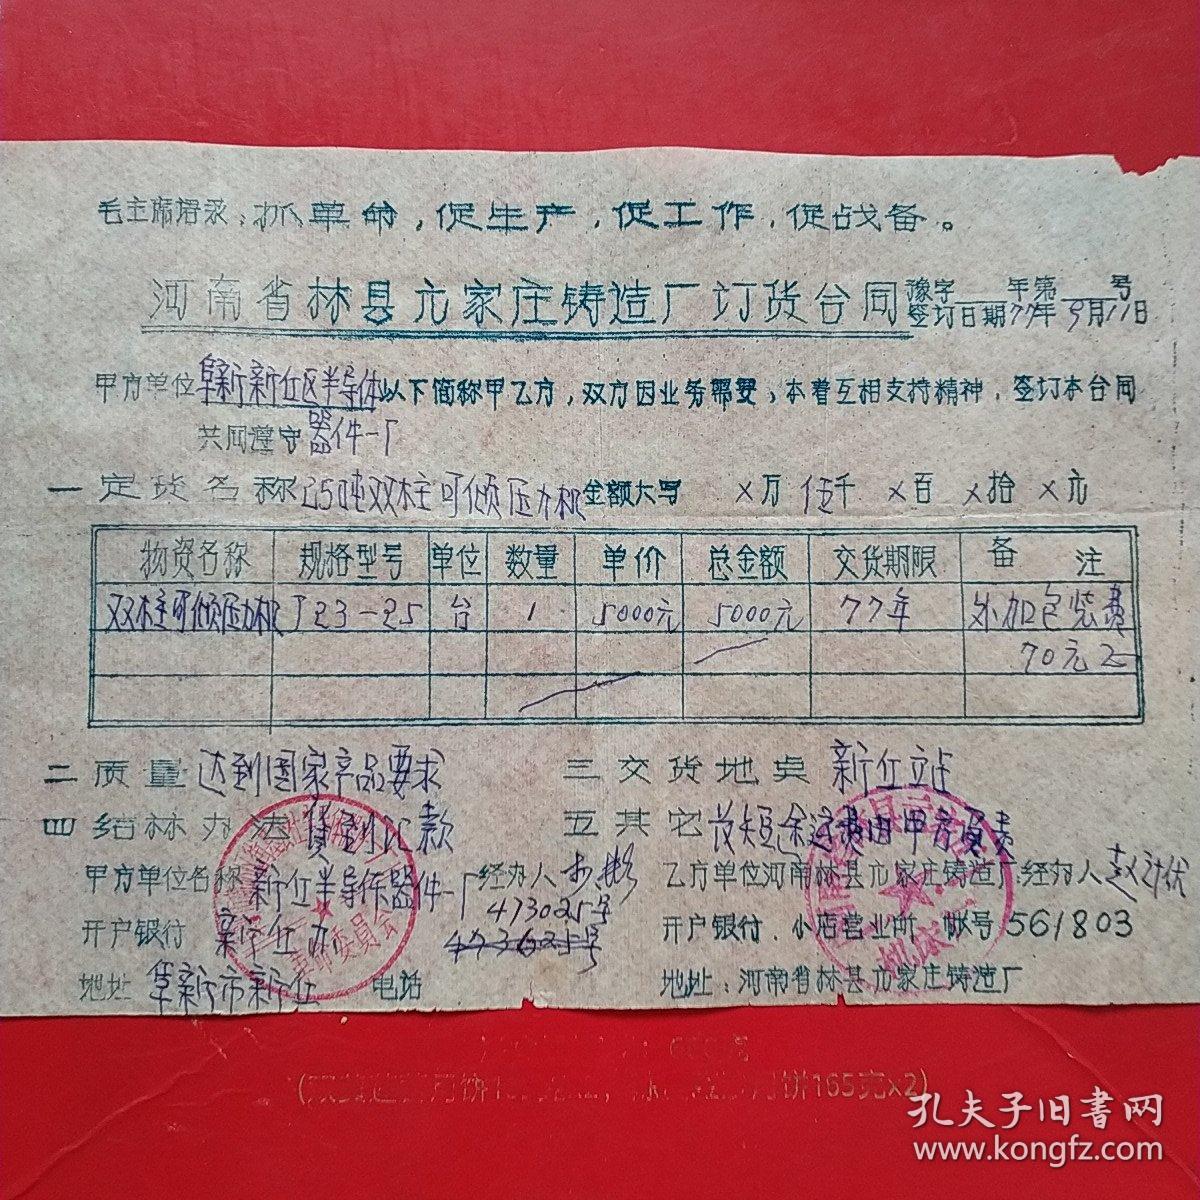 毛主席语录：抓革命，促生产，促工作，促战备。
河南省林县亢家庄铸造厂订货合同
豫字 年第 号
签订日期77年9月17日
甲方单位阜新新丘区半导体以下简称甲乙方，双方因业务需要，本着互相支持精神，签订本合同
共同遵守 器件一厂
一 定货名称 25吨双柱可倾压力机 金额大写 X万伍千X百X拾X元
物资名称 规格型号 单位 数量 单价 总金额 交货期限 备注
双柱可倾压力机 J23-25 台 1 5000元 5000元 77年 外加包装费
70元正
二 质量 达到国家产品要求 三 交货地点 新丘立占
四 结林办法 货到汇款 五 其它 运费由甲方负责
甲方单位名称 新丘半导体器件一厂 经办人 乙方单位河南林县亢家庄铸造厂 经办人
473025号
开户银行 新丘办 开户银行．小店营业所 帐号561803
地址 阜新市新丘 电话 地址：河南省林县亢家庄铸造厂
饼165克x2)
孔夫子旧书网
www.kongfz.com